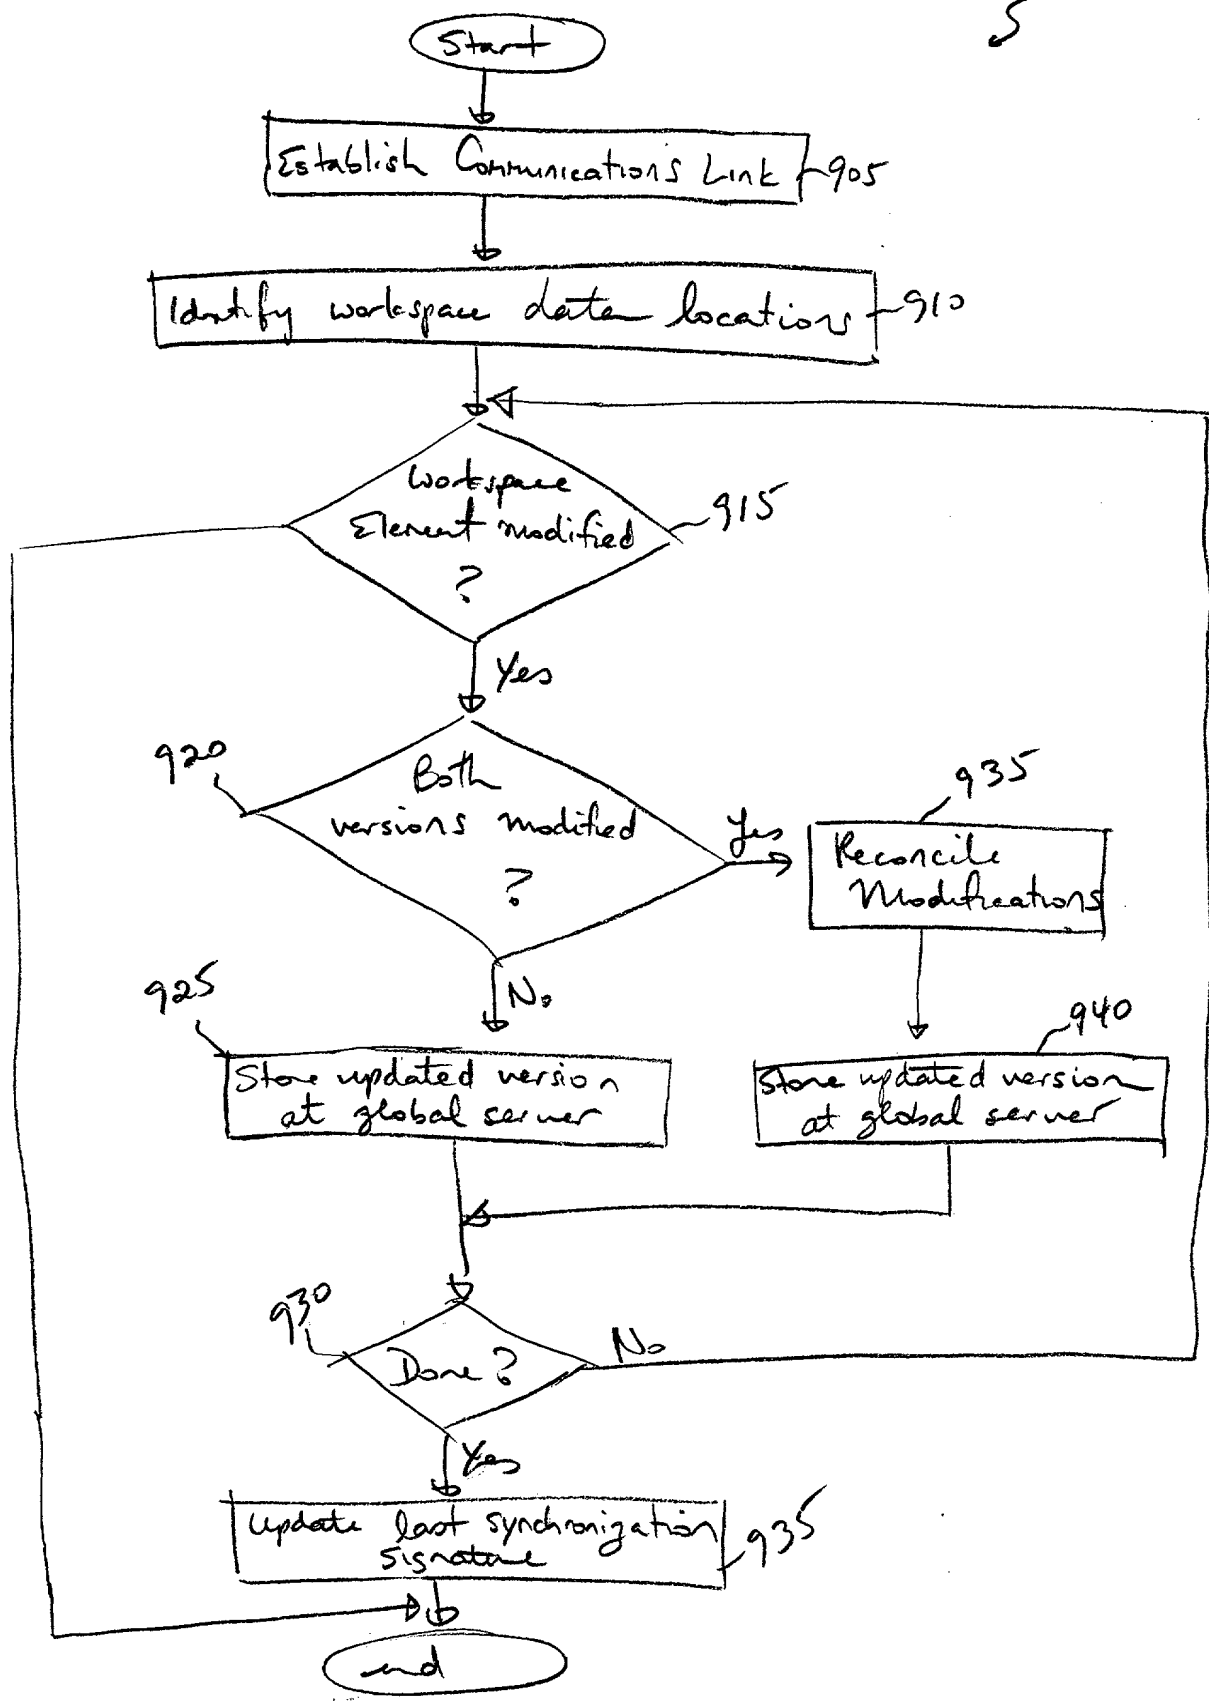 5
Start
Establish Communications Link
905
Identify workspace data locations
910
Workspace
Element modified
?
915
Yes
920
Both
versions modified
?
Yes
935
Reconcile
Modifications
No
925
Store updated version
at global server
940
Store updated version
at global server
930
Done?
No
Yes
Update last synchronization
signature
935
end